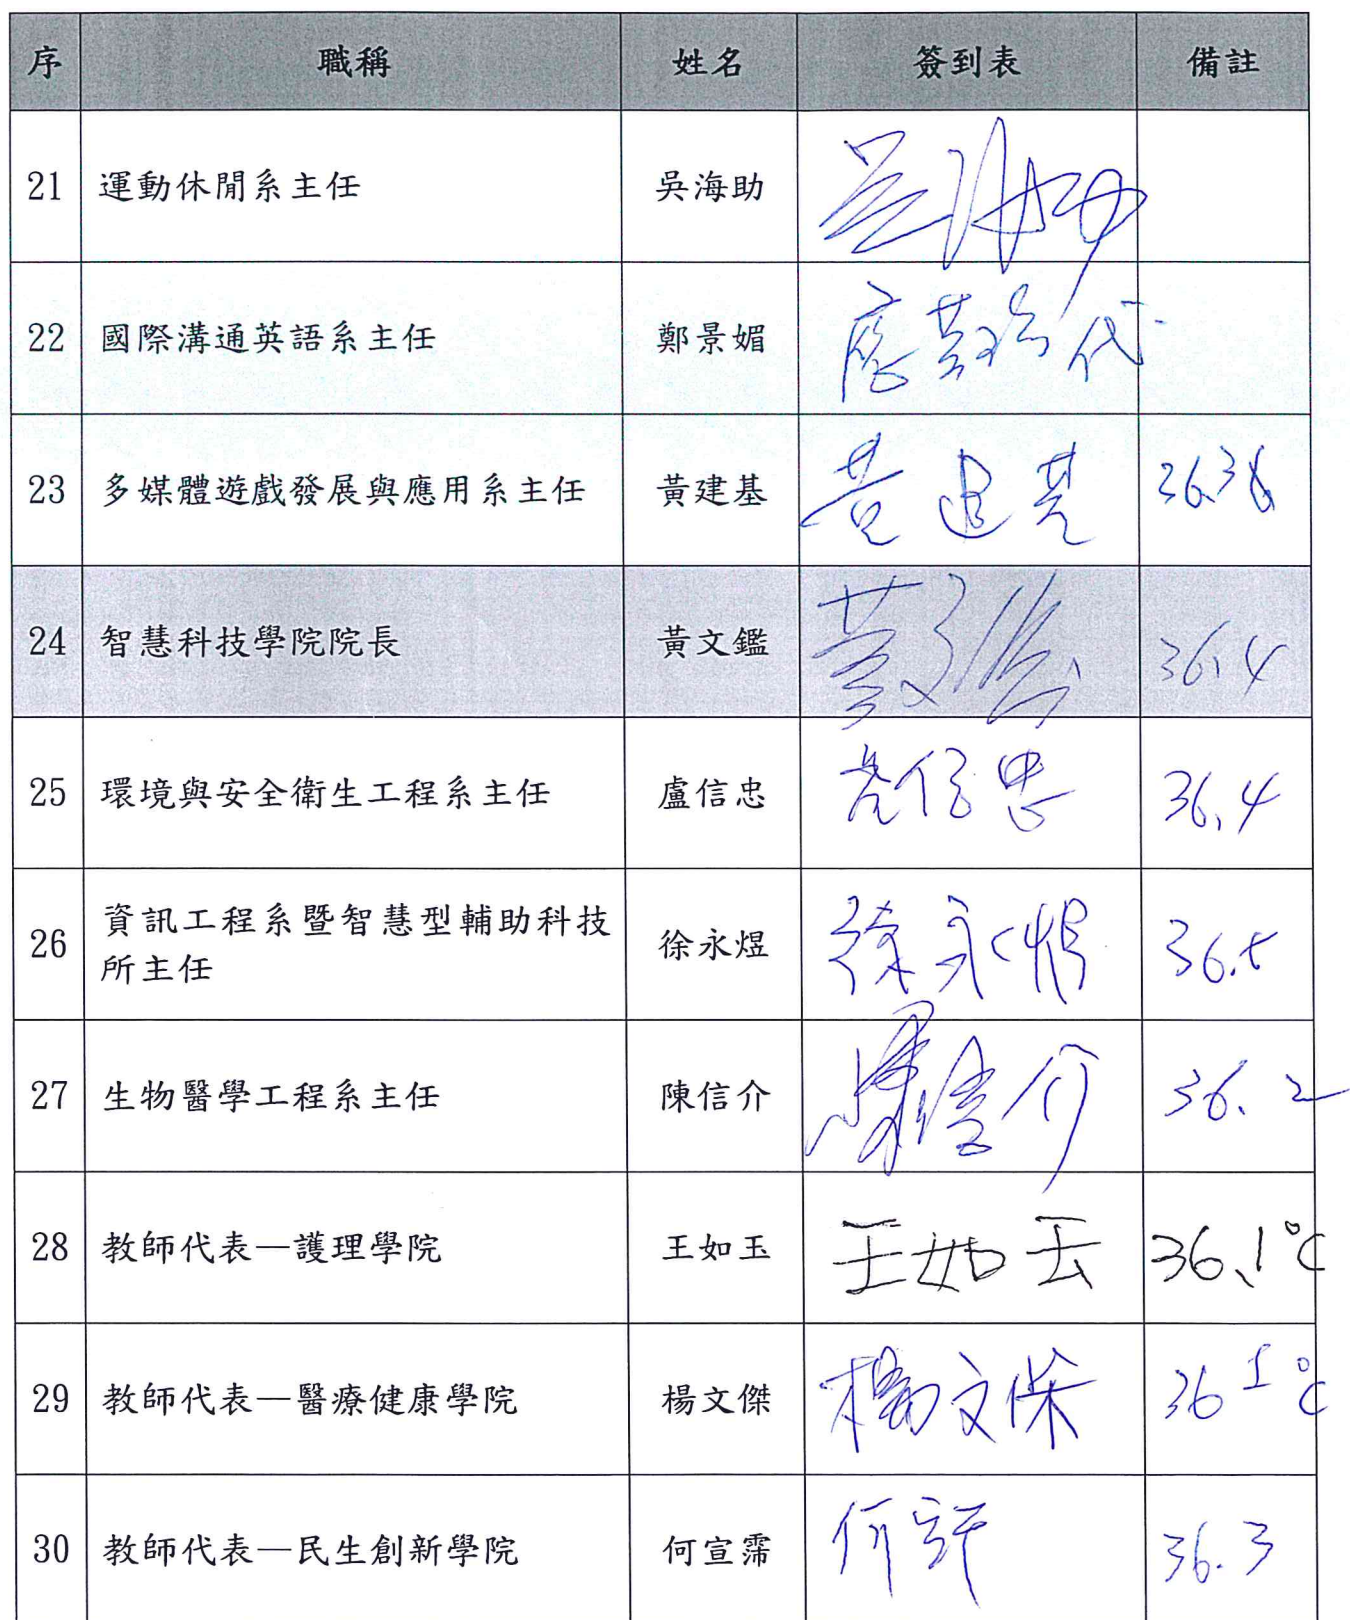 序 職稱 姓名 簽到表 備註
21 運動休閒系主任 吳海助 吳海助
22 國際溝通英語系主任 鄭景媚 代
23 多媒體遊戲發展與應用系主任 黃建基 黃建基
24 智慧科技學院院長 黃文鑑 黃文鑑 36.4
25 環境與安全衛生工程系主任 盧信忠 盧信忠 36.4
26 資訊工程系暨智慧型輔助科技
所主任 徐永煜 徐永煜 36.5
27 生物醫學工程系主任 陳信介 陳信介 36.2
28 教師代表—護理學院 王如玉 王如玉 36.1°C
29 教師代表—醫療健康學院 楊文傑 楊文傑 36
30 教師代表—民生創新學院 何宣霈 36.3